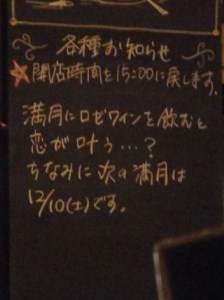 各種お知らせ
★開店時間を15:00に戻します。
満月にロゼワインを飲むと
恋が叶う…?
ちなみに次の満月は
12/10(土)です。